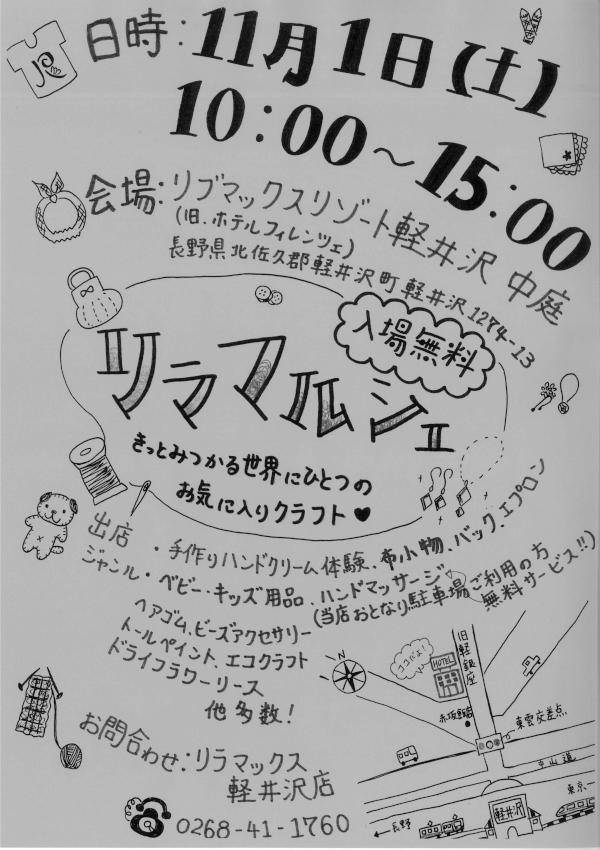 日時:11月1日(土)
10:00～15:00
会場:リブマックスリゾート軽井沢 中庭
(旧.ホテルフィレンツェ)
長野県北佐久郡軽井沢町軽井沢1274-13
入場無料
リラマルシェ
きっとみつかる世界にひとつの
お気に入りクラフト♥
出店
ジャンル
・手作りハンドクリーム体験、布小物、バック、エプロン
・ベビー・キッズ用品、ハンドマッサージ
(当店おとなり駐車場ご利用の方
無料サービス!!)
ヘアゴム、ビーズアクセサリー
トールペイント、エコクラフト
ドライフラワーリース
他多数!
お問合わせ:リラマックス
軽井沢店
0268-41-1760
N
ココだよ!
HOTEL
旧軽銀座
東雲交差点
中山道
東京
軽井沢
←長野